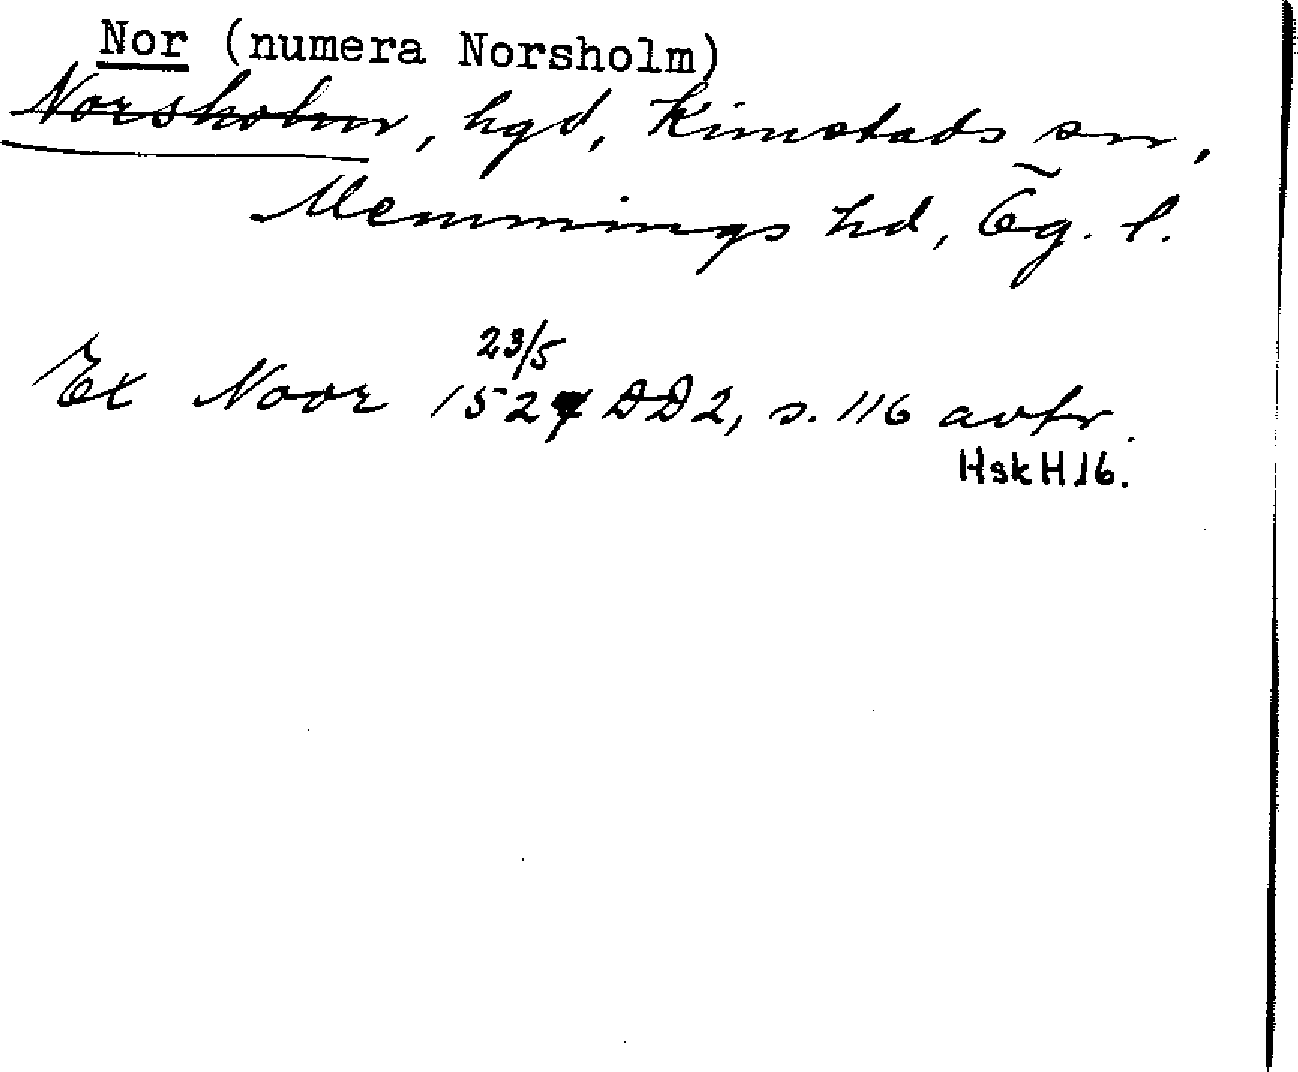 Nor (numera Norsholm)
Norsholm, hgd, Kimstads sn,
Memmings hd, Ög. l.
23/5
Ex Noor 1527 DD2, s. 116 avtr.
Hsk H 16.